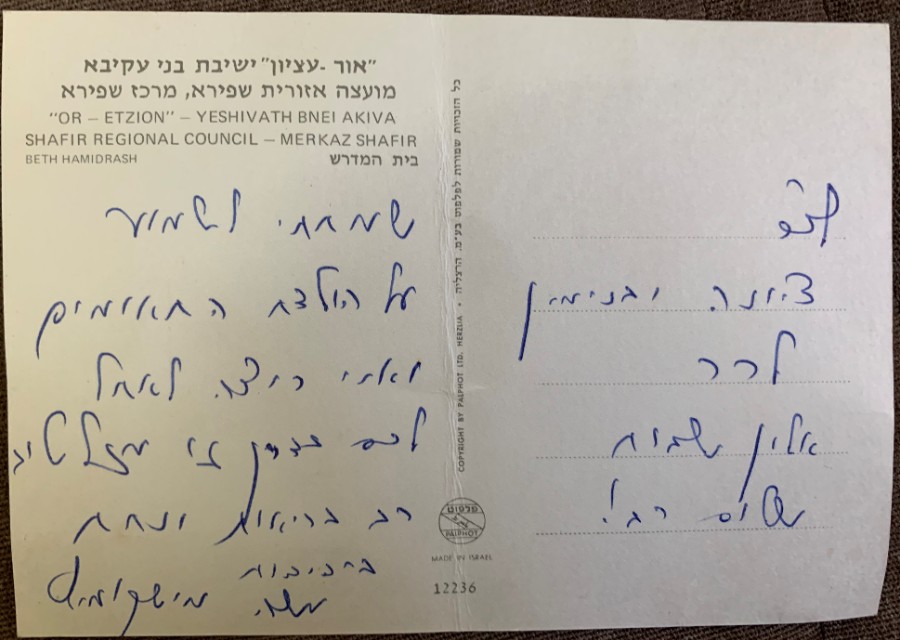 "אור -עציון" ישיבת בני עקיבא
מועצה אזורית שפירא, מרכז שפירא
"OR – ETZION" – YESHIVATH BNEI AKIVA
SHAFIR REGIONAL COUNCIL – MERKAZ SHAFIR
BETH HAMIDRASH בית המדרש
שמחתי לשמוע
על הולדת התאומים
ואני רוצה לאחל
לכם בדרך זו מזל טוב
רב בריאות ונחת
משה
כל הזכויות שמורות לפלפוט בע"מ. הרצליה • COPYRIGHT BY PALPHOT LTD. HERZLIA
פלפוט
PALPHOT
MADE IN ISRAEL
12236
ציונה ובנימין
לרר
אלון שבות
שלום רב!